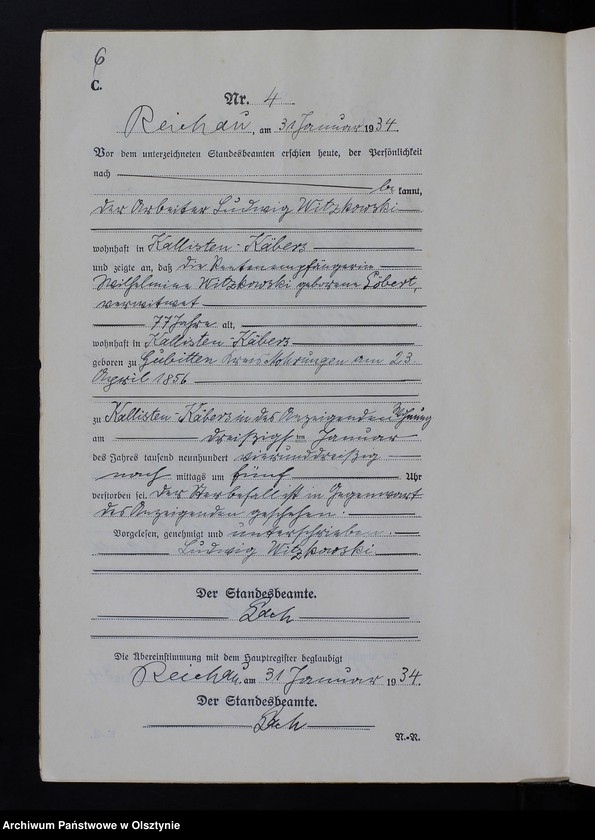 6
C.
Nr. 4
Reichau, am 31 Januar 1934.
Vor dem unterzeichneten Standesbeamten erschien heute, der Persönlichkeit
nach be kannt,
der Arbeiter Ludwig Witzkowski
wohnhaft in Kallisten-Käbers
und zeigte an, daß die Rentenempfängerin
Wilhelmine Witzkowski geborene Löbert,
verwitwet
77 Jahre alt,
wohnhaft in Kallisten-Käbers
geboren zu Gubitten Kreis Mohrungen am 23
April 1856
zu Kallisten-Käbers in des Anzeigenden Wohnung
am dreißigsten Januar
des Jahres tausend neunhundert vierunddreißig
nach mittags um fünf Uhr
verstorben sei. Der Sterbefall ist in Gegenwart
des Anzeigenden geschehen.
Vorgelesen, genehmigt und unterschrieben.
Ludwig Witzkowski
Der Standesbeamte.
Die Übereinstimmung mit dem Hauptregister beglaubigt
Reichau, am 31 Januar 1934.
Der Standesbeamte.
N.-R.
Archiwum Państwowe w Olsztynie